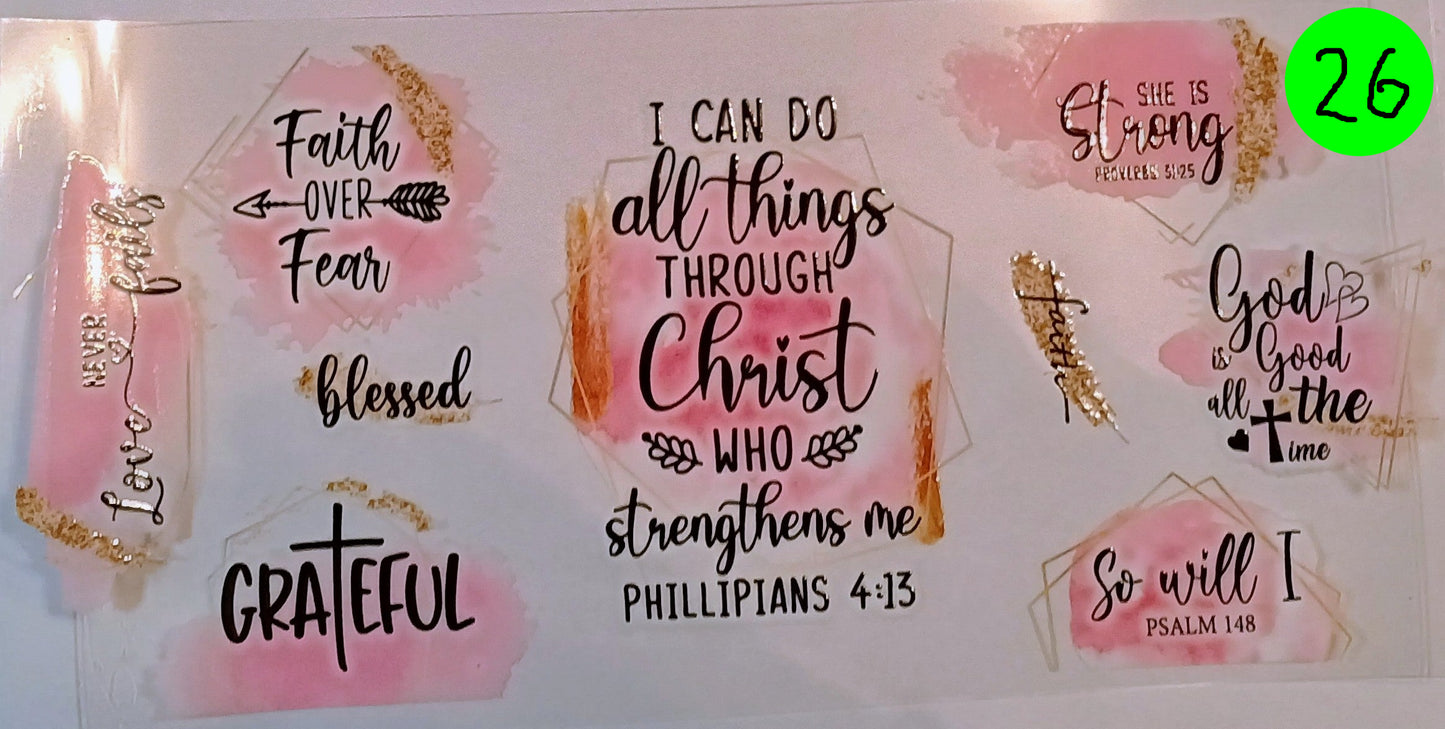 Love
NEVER
fails
Faith
OVER
Fear
blessed
GRATEFUL
I CAN DO
all things
THROUGH
Christ
WHO
strengthens me
PHILLIPIANS 4:13
SHE IS
Strong
PROVERBS 31:25
faith
God
is Good
all the
time
So will I
PSALM 148
26